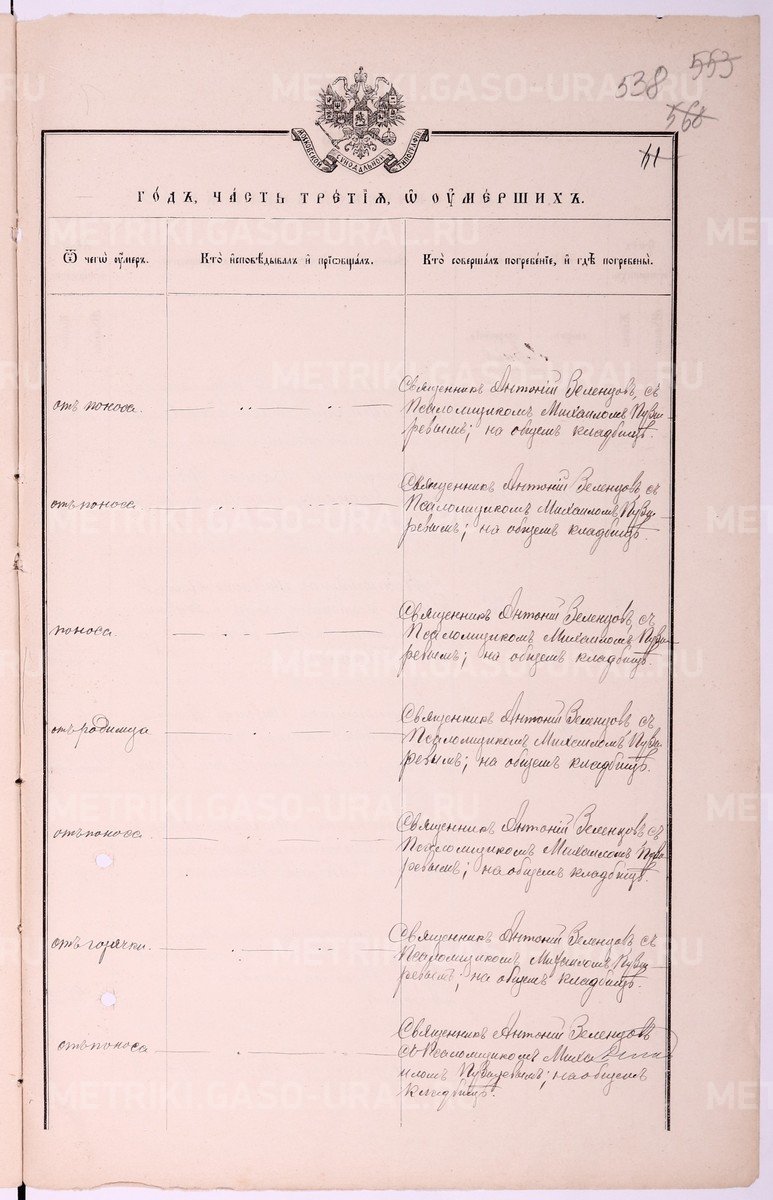 553
538
560
41
МОСКОВСКОЙ СѴНОДАЛЬНОЙ ТИПОГРАФІИ
ГО́ДЪ, ЧА́СТЬ ТРЕ́ТІѦ, Ѿ ОУ҆МЕ́РШИХЪ.
Ѿ чегѡ̀ ᲂу҆́меръ.
Кто̀ и҆сповѣ́дывалъ и҆ прїѡбща́лъ.
Кто̀ соверша́лъ погребе́нїе, и҆ гдѣ̀ погребены̀.
отъ поноса.
Священникъ Антоній Зеленцовъ, съ
Псаломщикомъ Михаиломъ Пузы
ревымъ; на общемъ кладбищѣ.
отъ поноса
Священникъ Антоній Зеленцовъ съ
Псаломщикомъ Михаиломъ Пузы
ревымъ; на общемъ кладбищѣ.
поноса.
Священникъ Антоній Зеленцовъ, съ
Псаломщикомъ Михаиломъ Пузы
ревымъ; на общемъ кладбищѣ.
отъ родимца
Священникъ Антоній Зеленцовъ съ
Псаломщикомъ Михаиломъ Пузы
ревымъ; на общемъ кладбищѣ.
отъ поноса
Священникъ Антоній Зеленцовъ съ
Псаломщикомъ Михаиломъ Пузы
ревымъ; на общемъ кладбищѣ.
отъ горячки.
Священникъ Антоній Зеленцовъ съ
Псаломщикомъ Михаиломъ Пузы
ревымъ; на общемъ кладбищѣ.
отъ поноса
Священникъ Антоній Зеленцовъ
съ Псаломщикомъ Миха
иломъ Пузыревымъ; на общемъ
кладбищѣ.
METRIKI.GASO-URAL.RU